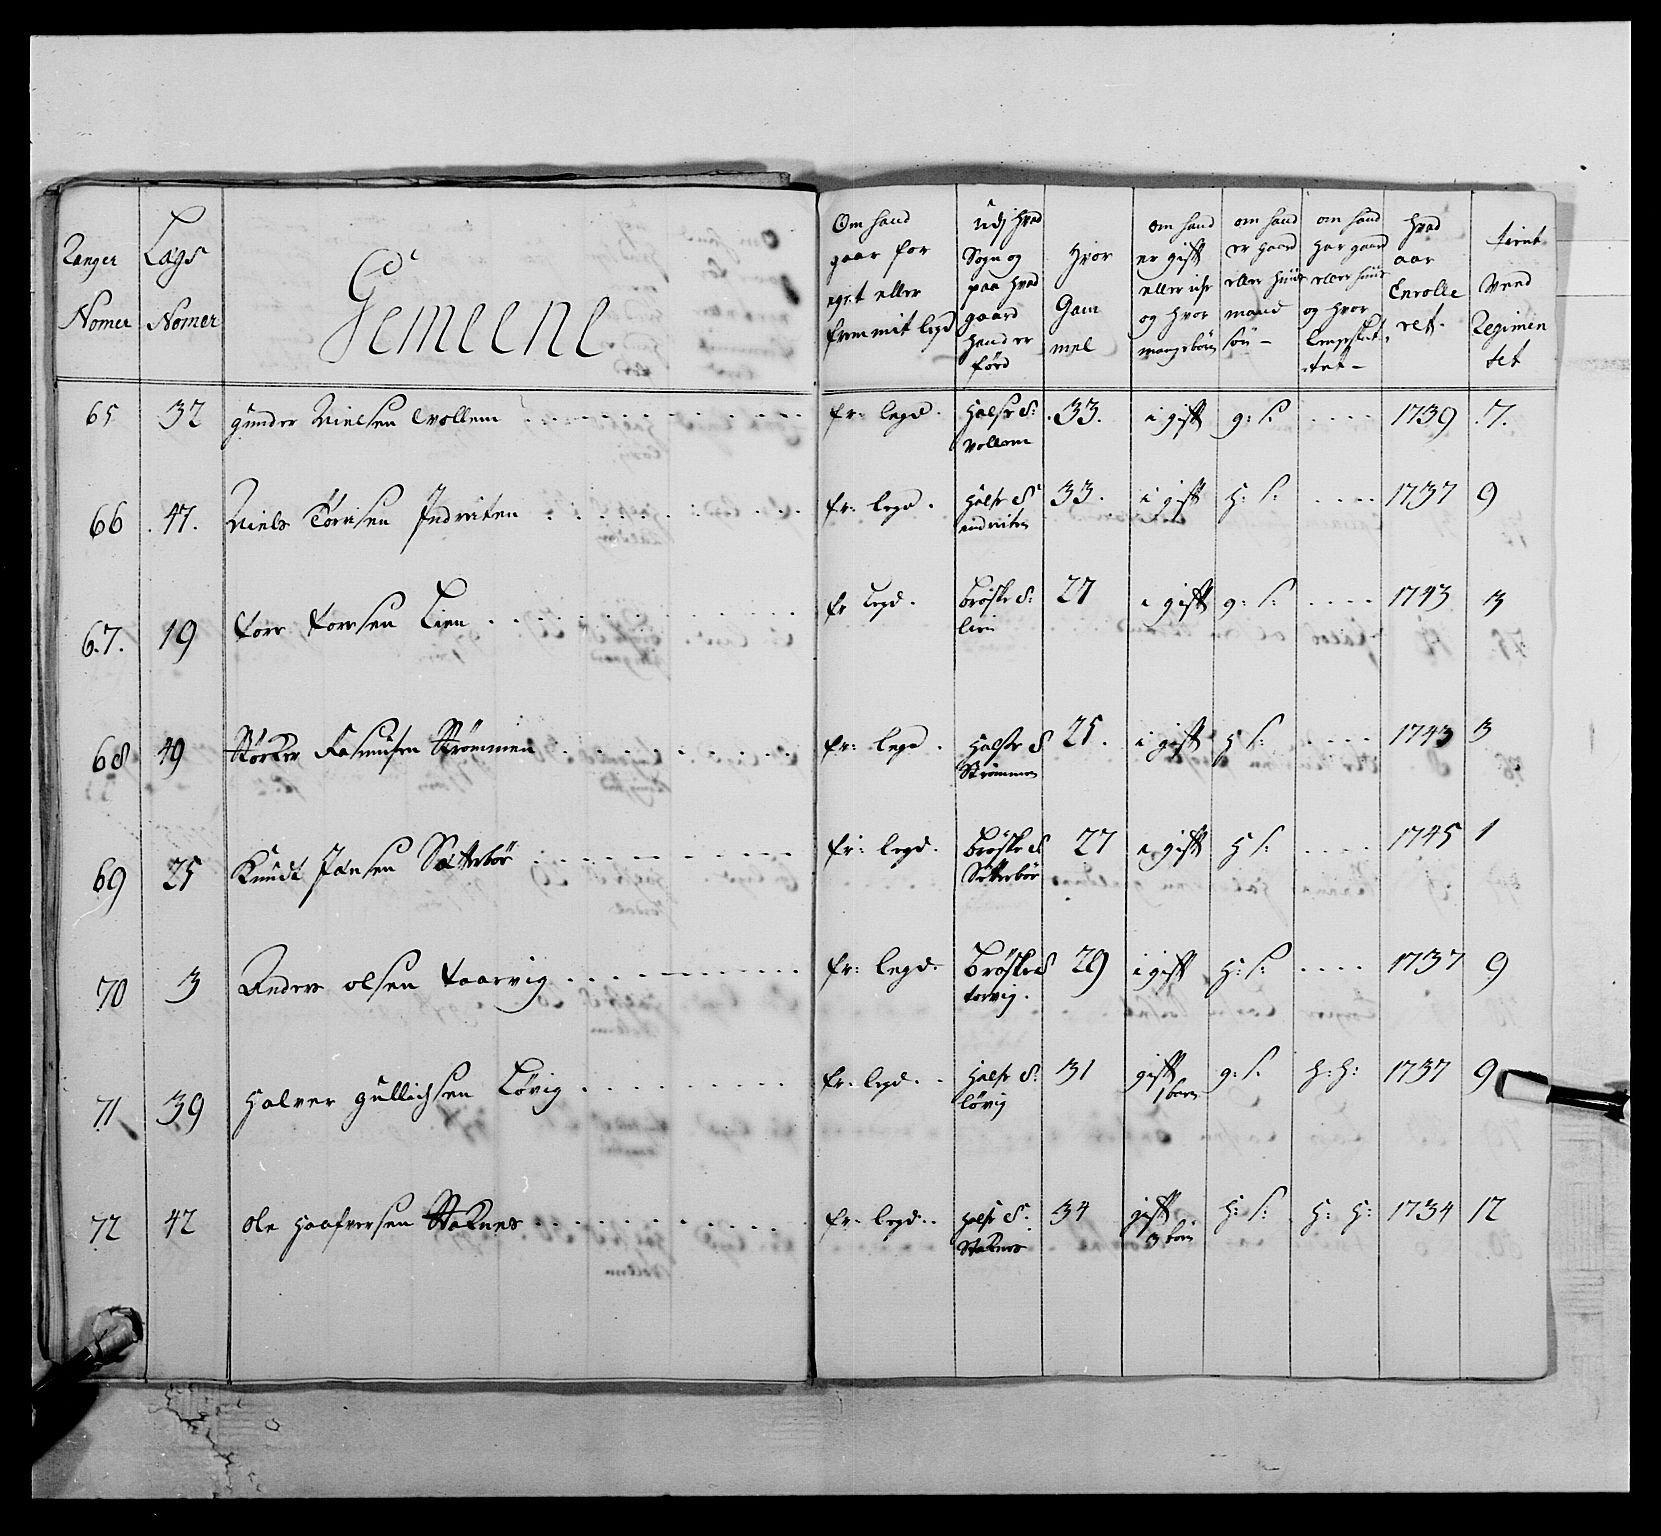 Ranger Nomer
Lags Nomer
Gemeene
Om hand gaar for eget eller fremmit legd
Udj hvad Sogn og paa hvad gaard hand er förd
Hvor Gam mel
om hand er gift eller ichr og hvor mange börn
om hand er gaard eller huus mand sön -
om hand har gaard eller huus og hvor
hvad aar Enrolle ret.
tient ved Regimen tet
65 32 gunder Nielsen Vollem fr: legd. Halse S: Vollem 33. i gift g: s: .... 1739 7.
66 47. Niels Törrisen Indreiten fr: legd. Halse S: indreiten 33. i gift H: s: .... 1737 9
67. 19 Torr Torrsen Lien fr legd. Bröske S: lien 27 i gift g: s: .... 1743 3
68 49 Störker Rasmusen Strömmen fr: legd. Halse S Strömmen 25. i gift H s: .... 1743 3
69 25 Knudt Jansen Sætterbör fr: legd. Bröske S Sætterbör 27 i gift H s: .... 1745 1
70 3 Anders olsen Taarvig fr: legd. Bröske S torvig. 29 i gift H: s: .... 1737 9
71 39 Halver gullichsen Lövig fr: legd. Halse S: lövig 31 gift 1 barn g: s: H: H: 1737 9
72 42 Ole Haafversen Staknes fr: legd. Halse S. Staknes 34 gift 3 börn H: s: H: H: 1734 12